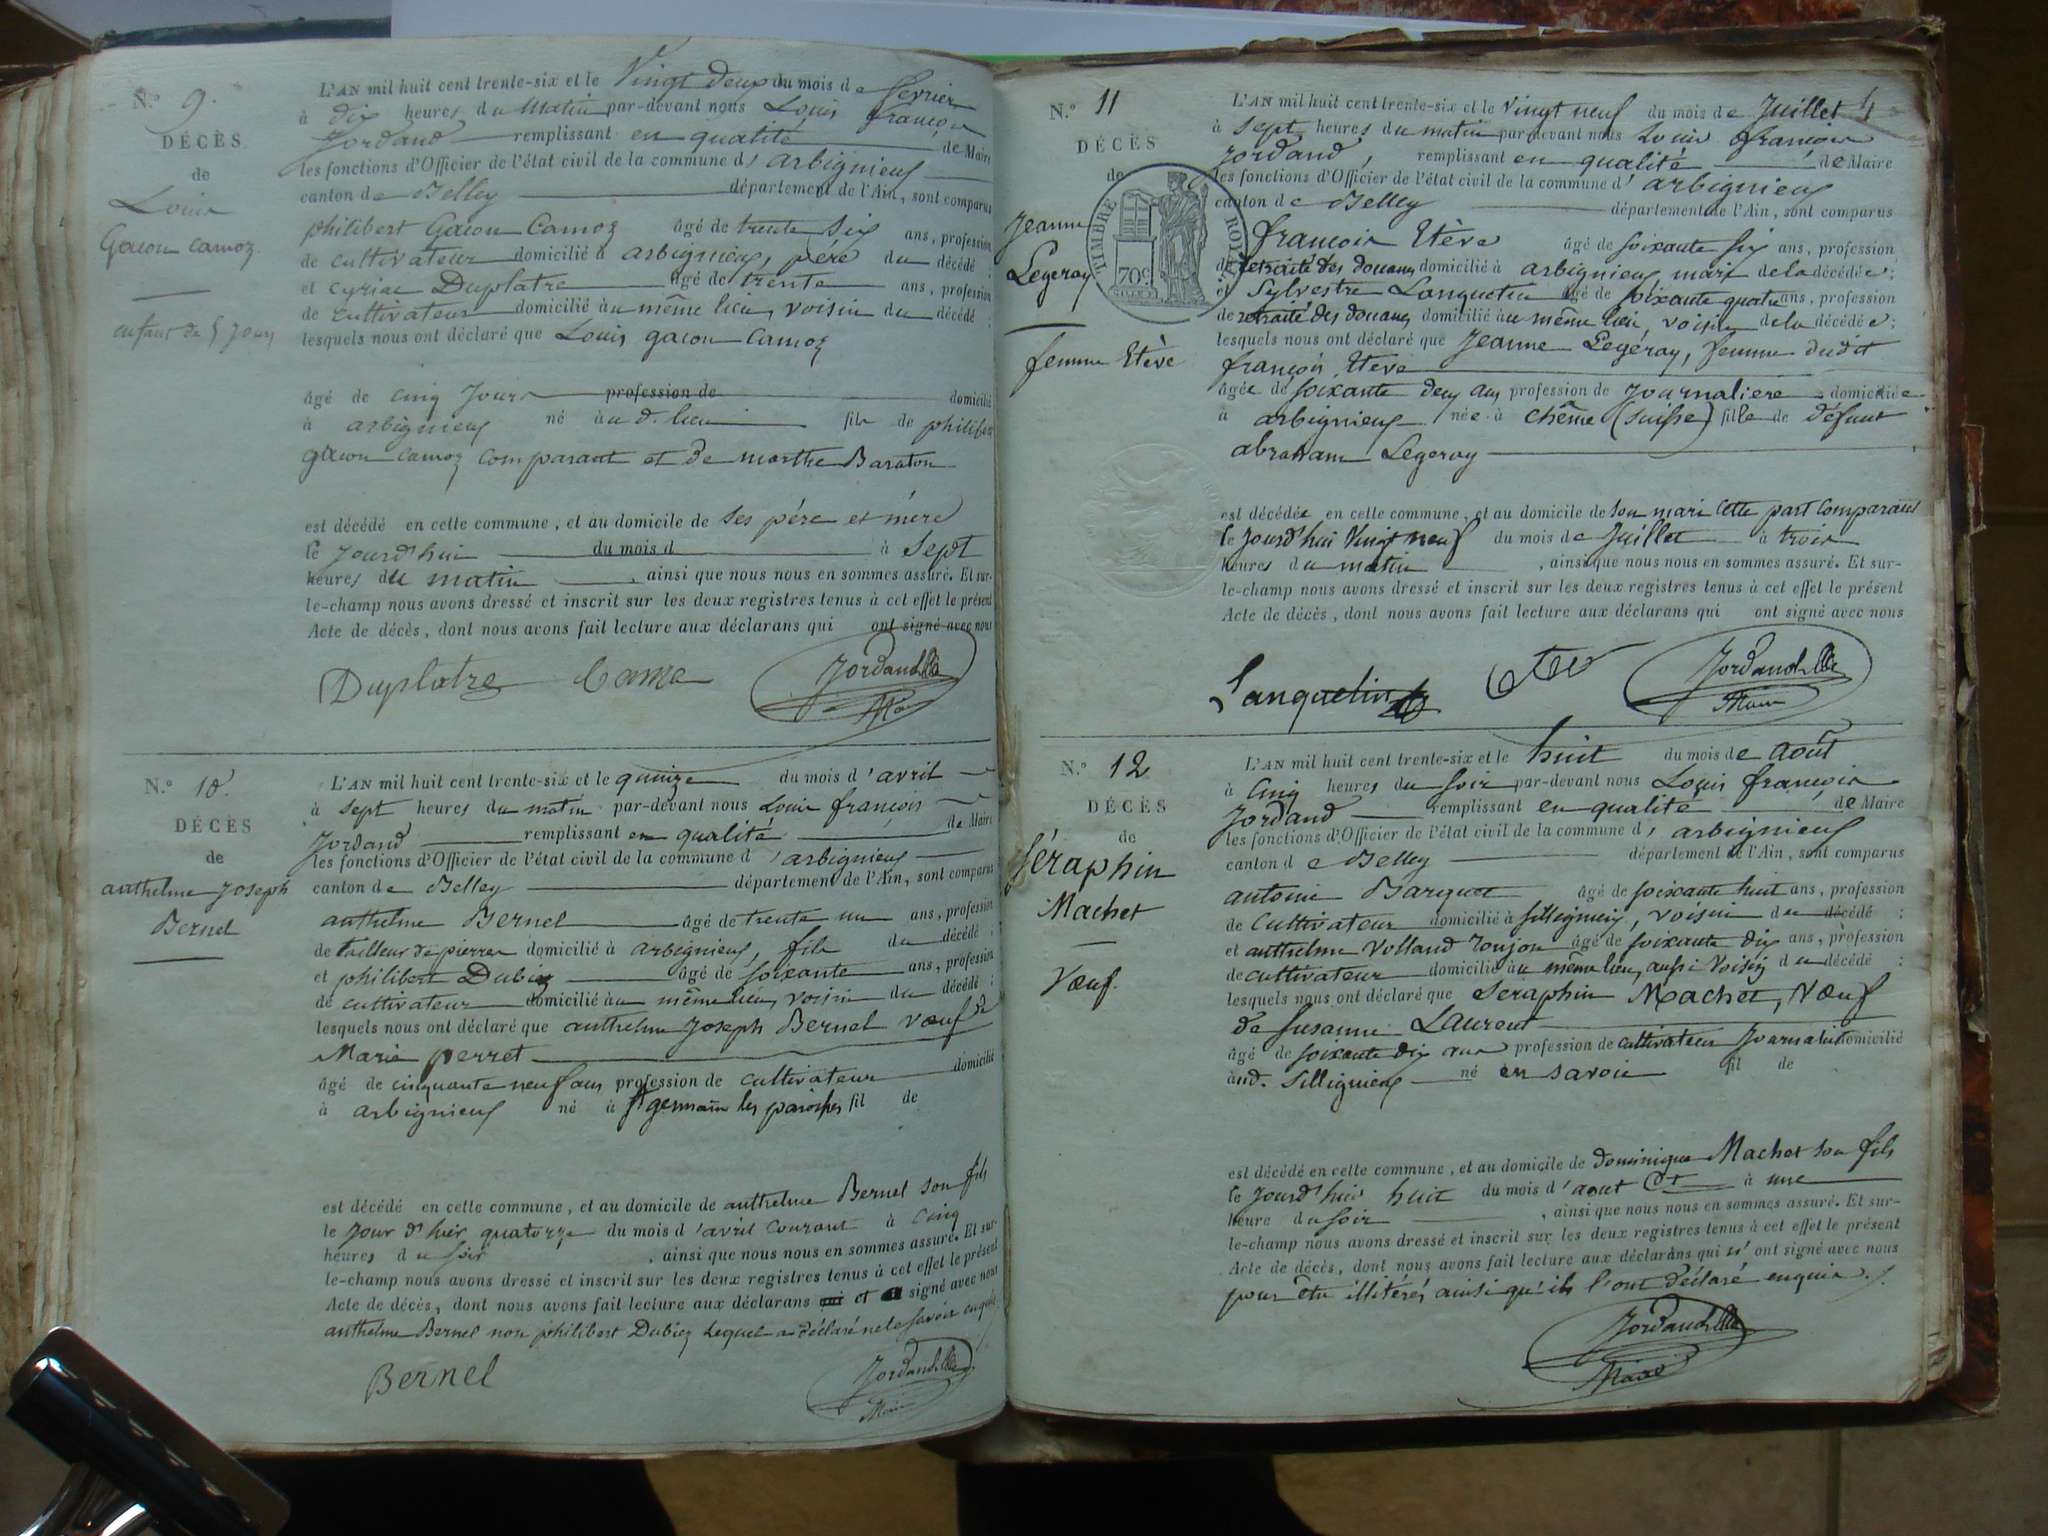 N.° 9.
DÉCÈS
de
Louis
Gacon Camoz.
enfant de 5 Jours
L'AN mil huit cent trente-six et le Vingt deux du mois de fevrier
à dix heures du matin par-devant nous Louis françois
Jordand remplissant en qualité de Maire
les fonctions d'Officier de l'état civil de la commune d'arbignieux
canton de Belley département de l'Ain, sont comparus
philibert Gacon Camoz âgé de trente six ans, profession
de cultivateur domicilié à arbignieux, père du décédé ;
et cyriac Duplatre âgé de trente ans, profession
de cultivateur domicilié au même lieu, voisin du décédé ;
lesquels nous ont déclaré que Louis gacon Camoz
âgé de cinq Jours profession de domicilié
à arbignieux né au d. lieu fils de philibert
gacon camoz comparant et de marthe Baraton
est décédé en cette commune, et au domicile de ses père et mère
le Jourd'hui du mois d à sept
heures du matin, ainsi que nous nous en sommes assuré. Et sur-
le-champ nous avons dressé et inscrit sur les deux registres tenus à cet effet le présent
Acte de décès, dont nous avons fait lecture aux déclarans qui ont signé avec nous
Duplatre Jordand
N.° 10.
DÉCÈS
de
anthelme Joseph
Bernel
L'AN mil huit cent trente-six et le quinze du mois d'avril
à sept heures du matin par-devant nous Louis françois
Jordand remplissant en qualité de Maire
les fonctions d'Officier de l'état civil de la commune d'arbignieux
canton de Belley département de l'Ain, sont comparus
anthelme Bernel âgé de trente un ans, profession
de tailleur de pierres domicilié à arbignieux, fils du décédé ;
et philibert Dubiez âgé de soixante ans, profession
de cultivateur domicilié au même lieu, voisin du décédé ;
lesquels nous ont déclaré que anthelme Joseph Bernel vœuf de
Marie perret
âgé de cinquante neuf ans profession de cultivateur domicilié
à arbignieux né à St germain les paroisses fil de
est décédé en cette commune, et au domicile de anthelme Bernel son fils
le Jour d'hier quatorze du mois d'avril courant à cinq
heures du soir, ainsi que nous nous en sommes assuré. Et sur-
le-champ nous avons dressé et inscrit sur les deux registres tenus à cet effet le présent
Acte de décès, dont nous avons fait lecture aux déclarans et a signé avec nous
anthelme Bernel non philibert Dubiez Lequel a déclaré ne le savoir enquis
Bernel Jordand
N.° 11
DÉCÈS
de
Jeanne
Legeray
femme Etève
TIMBRE ROYAL
70c
L'AN mil huit cent trente-six et le vingt neuf du mois de Juillet
à sept heures du matin par-devant nous Louis françois
Jordand, remplissant en qualité de Maire
les fonctions d'Officier de l'état civil de la commune d'arbignieux
canton de Belley département de l'Ain, sont comparus
françois Etève âgé de soixante six ans, profession
de retraité des douanes domicilié à arbignieux mari de la décédée ;
et Sylvestre Lanquetin âgé de soixante quatre ans, profession
de retraité des douanes domicilié au même lieu, voisin de la décédée ;
lesquels nous ont déclaré que Jeanne Legéray, femme dudit
françois Eteve
âgée de soixante deux ans profession de Journaliere domiciliée
à arbignieux née à chême (suisse) fille de défunt
abraham Legeray
est décédée en cette commune, et au domicile de son mari cette part comparant
le Jourd'hui Vingt neuf du mois de Juillet à trois
heures du matin, ainsi que nous nous en sommes assuré. Et sur-
le-champ nous avons dressé et inscrit sur les deux registres tenus à cet effet le présent
Acte de décès, dont nous avons fait lecture aux déclarans qui ont signé avec nous
Lanquetin Jordand
Maire
N.° 12
DÉCÈS
de
Séraphin
Machet
Vœuf.
L'AN mil huit cent trente-six et le huit du mois de Août
à cinq heures du soir par-devant nous Louis françois
Jordand remplissant en qualité de Maire
les fonctions d'Officier de l'état civil de la commune d'arbignieux
canton de Belley département de l'Ain, sont comparus
antoine Barquet âgé de soixante huit ans, profession
de Cultivateur domicilié à sillignieux, voisin du décédé ;
et anthelme Volland Joujon âgé de soixante dix ans, profession
de cultivateur domicilié au même lieu, aussi Voisin du décédé ;
lesquels nous ont déclaré que Seraphin Machet, Vœuf
de Susanne Laurent
âgé de soixante dix ans profession de cultivateur Journalier domicilié
aud. Sillignieux né en savoie fil de
est décédé en cette commune, et au domicile de dominique Machet son fils
le Jourd'hui huit du mois d'aout Ct à une
heure du soir, ainsi que nous nous en sommes assuré. Et sur-
le-champ nous avons dressé et inscrit sur les deux registres tenus à cet effet le présent
Acte de décès, dont nous avons fait lecture aux déclarans qui n'ont signé avec nous
pour être illitérés ainsi qu'ils l'ont déclaré enquis.
Jordand
Maire